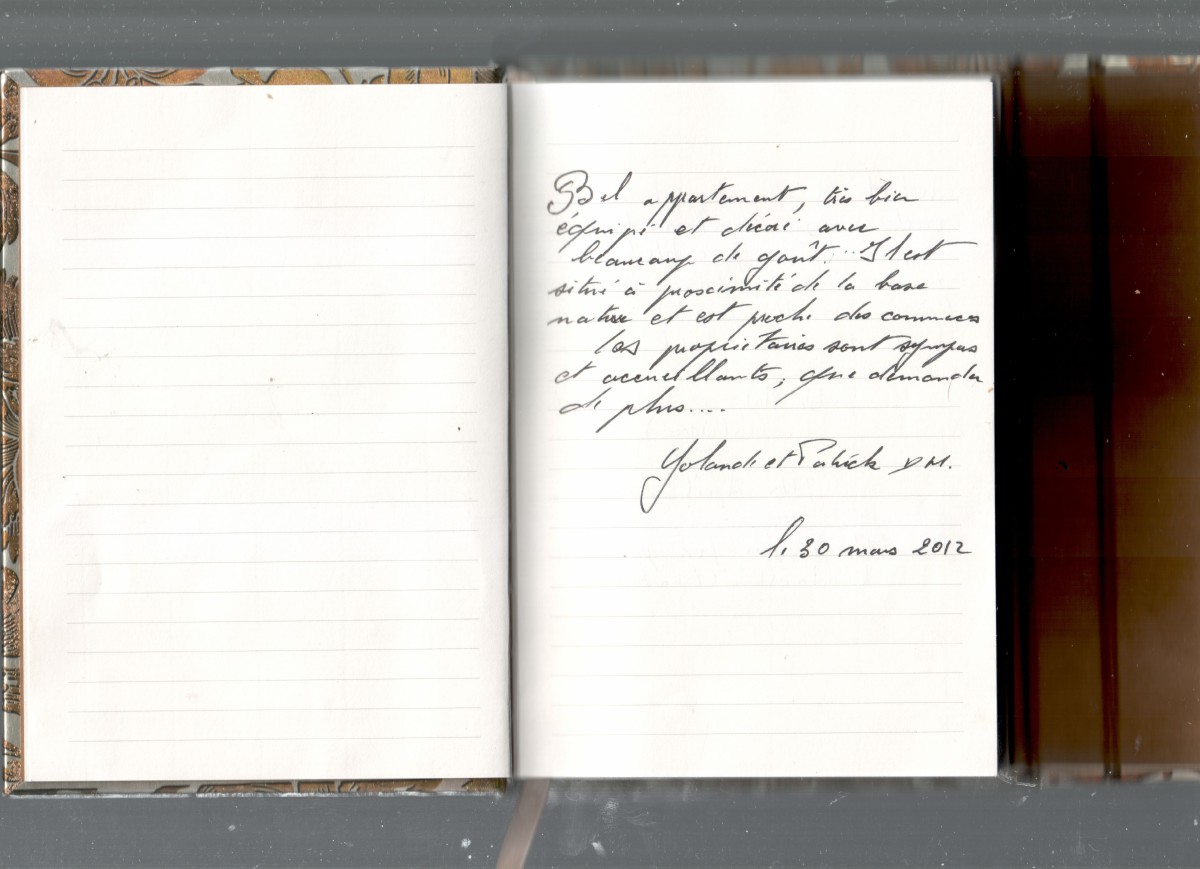 Bel appartement, très bien
équipé et décoré avec
beaucoup de goût... Il est
situé à proximité de la base
nature et est proche des commerces
Les propriétaires sont sympas
et accueillants, que demander
de plus....
Yolande et Patrick DM.
le 30 mars 2012